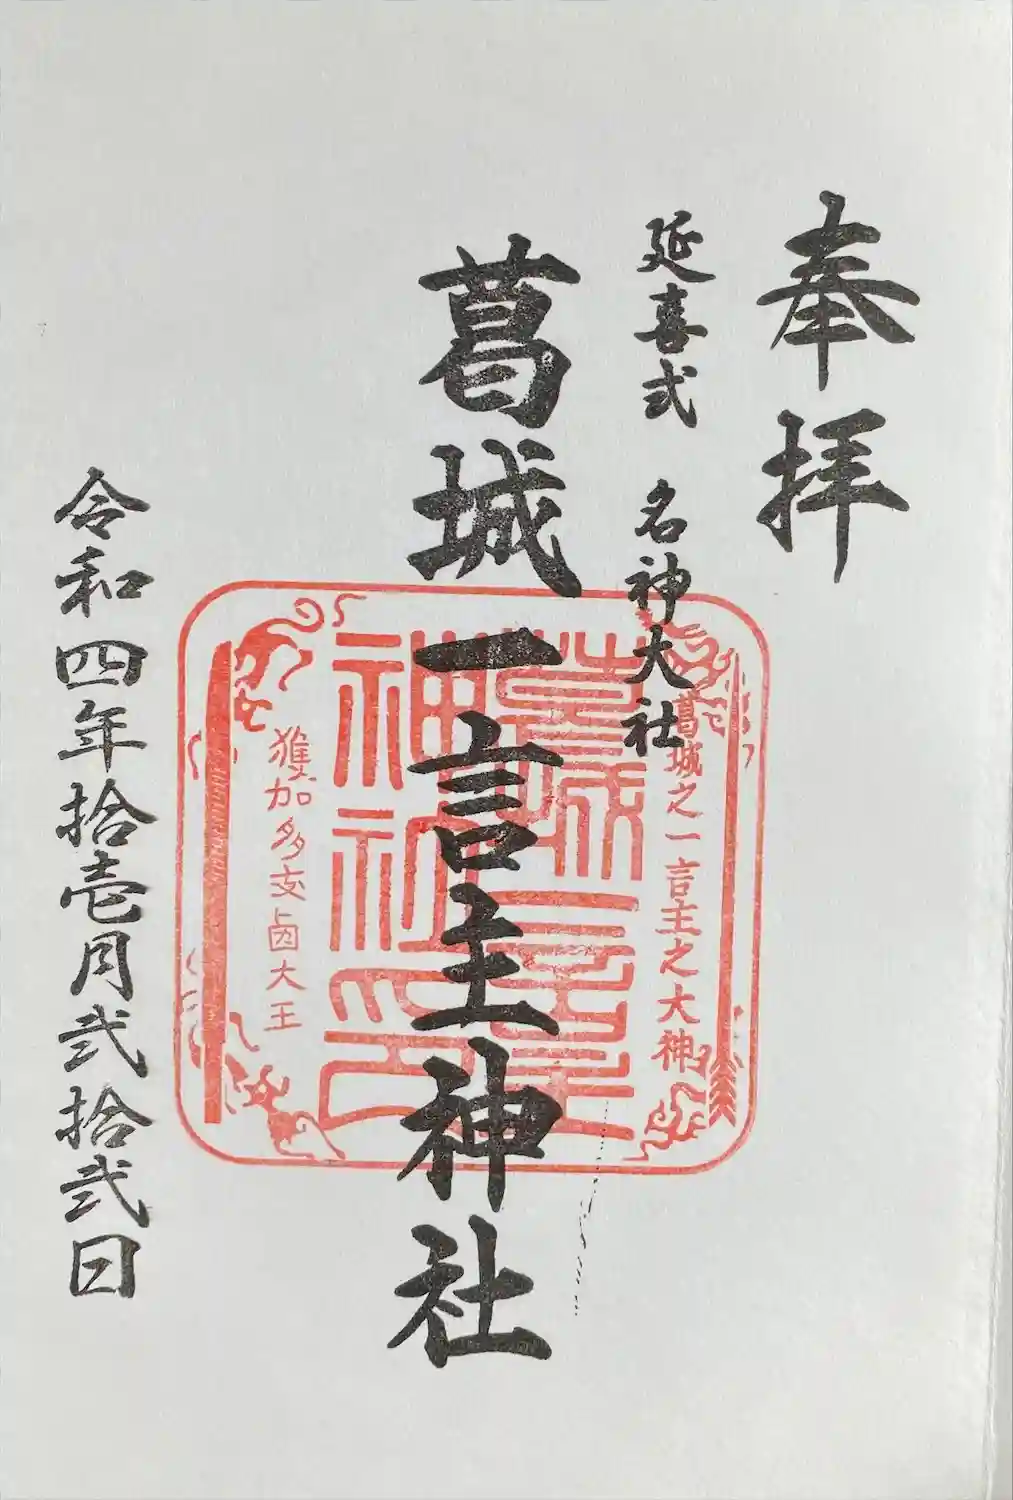 奉拝
延喜式 名神大社
葛城一言主神社
葛城之一言主之大神
葛城一言主
神社之印
獲加多支鹵大王
令和四年拾壱月弐拾弐日